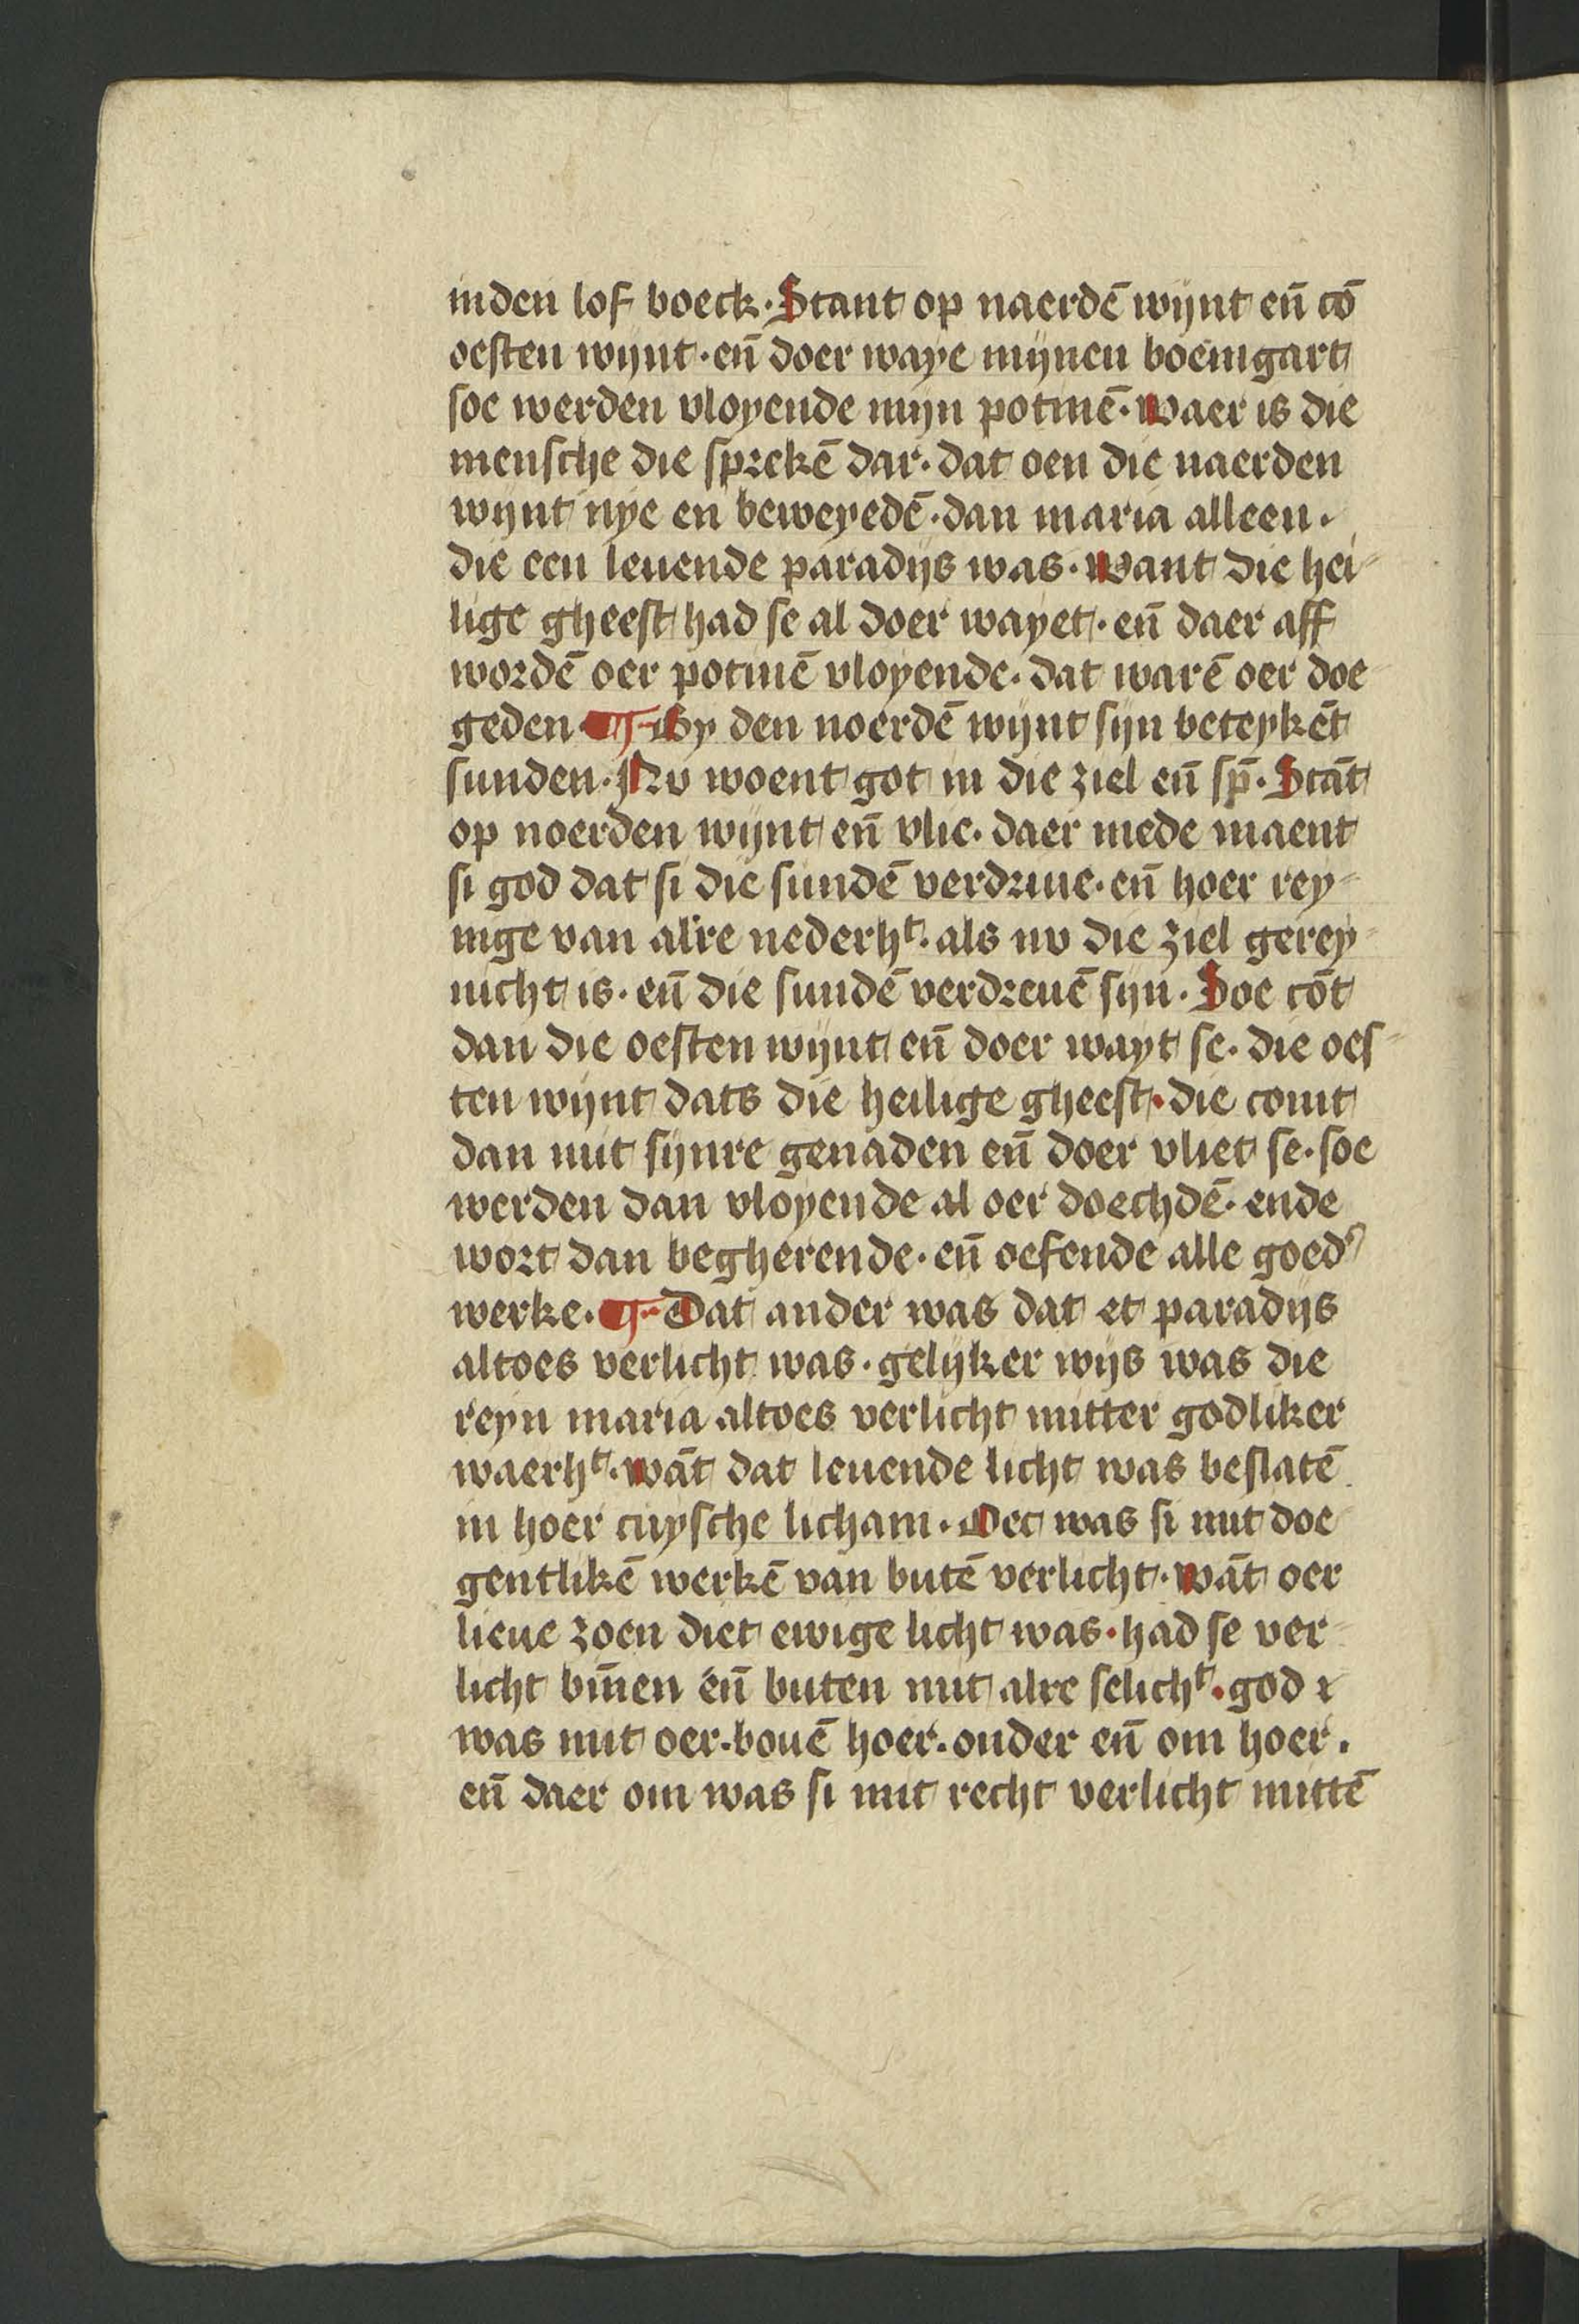 inden lof boeck. Stant op naerdē wijnt eñ cō
oesten wijnt. eñ doer waye mijnen boemgart
soe werden vloyende mijn potmē. Waer is die
mensche die sprekē dar. dat oen die naerden
wijnt nye en beweyedē. dan maria alleen.
die een leuende paradijs was. Want die hei-
lige gheest had se al doer wayet. eñ daer aff
wordē oer potmē vloyende. dat warē oer doe
geden. ¶ By den noerdē wijnt sijn beteykēt
sunden. Nv woent got in die ziel eñ sp̄. Stāt
op noerden wijnt eñ vlie. daer mede maent
si god dat si die sundē verdriue. eñ hoer rey-
nige van alre nederhᵗ. als nv die ziel gerey-
nicht is. eñ die sundē verdreuē sijn. Soe cōt
dan die oesten wijnt eñ doer wayt se. die oes-
ten wijnt dats die heilige gheest. die comt
dan mit sijnre genaden eñ doer vliet se. soe
werden dan vloyende al oer doechdē. ende
wort dan begherende. eñ oefende alle goedʾ
werke. ¶ Dat ander was dat et paradijs
altoes verlicht was. gelijker wijs was die
reyn maria altoes verlicht mitter godliker
waerhᵗ. wāt dat leuende licht was beslatē
in hoer cuysche licham. Oec was si mit doe
gentlikē werkē van butē verlicht. wāt oer
lieue zoen diet ewige licht was. had se ver-
licht bīnen eñ buten mit alre selichᵗ. god
was mit oer. bouē hoer. onder eñ om hoer.
eñ daer om was si mit recht verlicht mittē